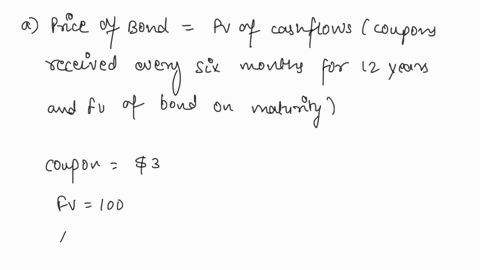 a) Price of Bond = PV of cashflows (coupons
received every six months for 12 years
and fv of bond on maturity)
coupon = $3
fv = 100